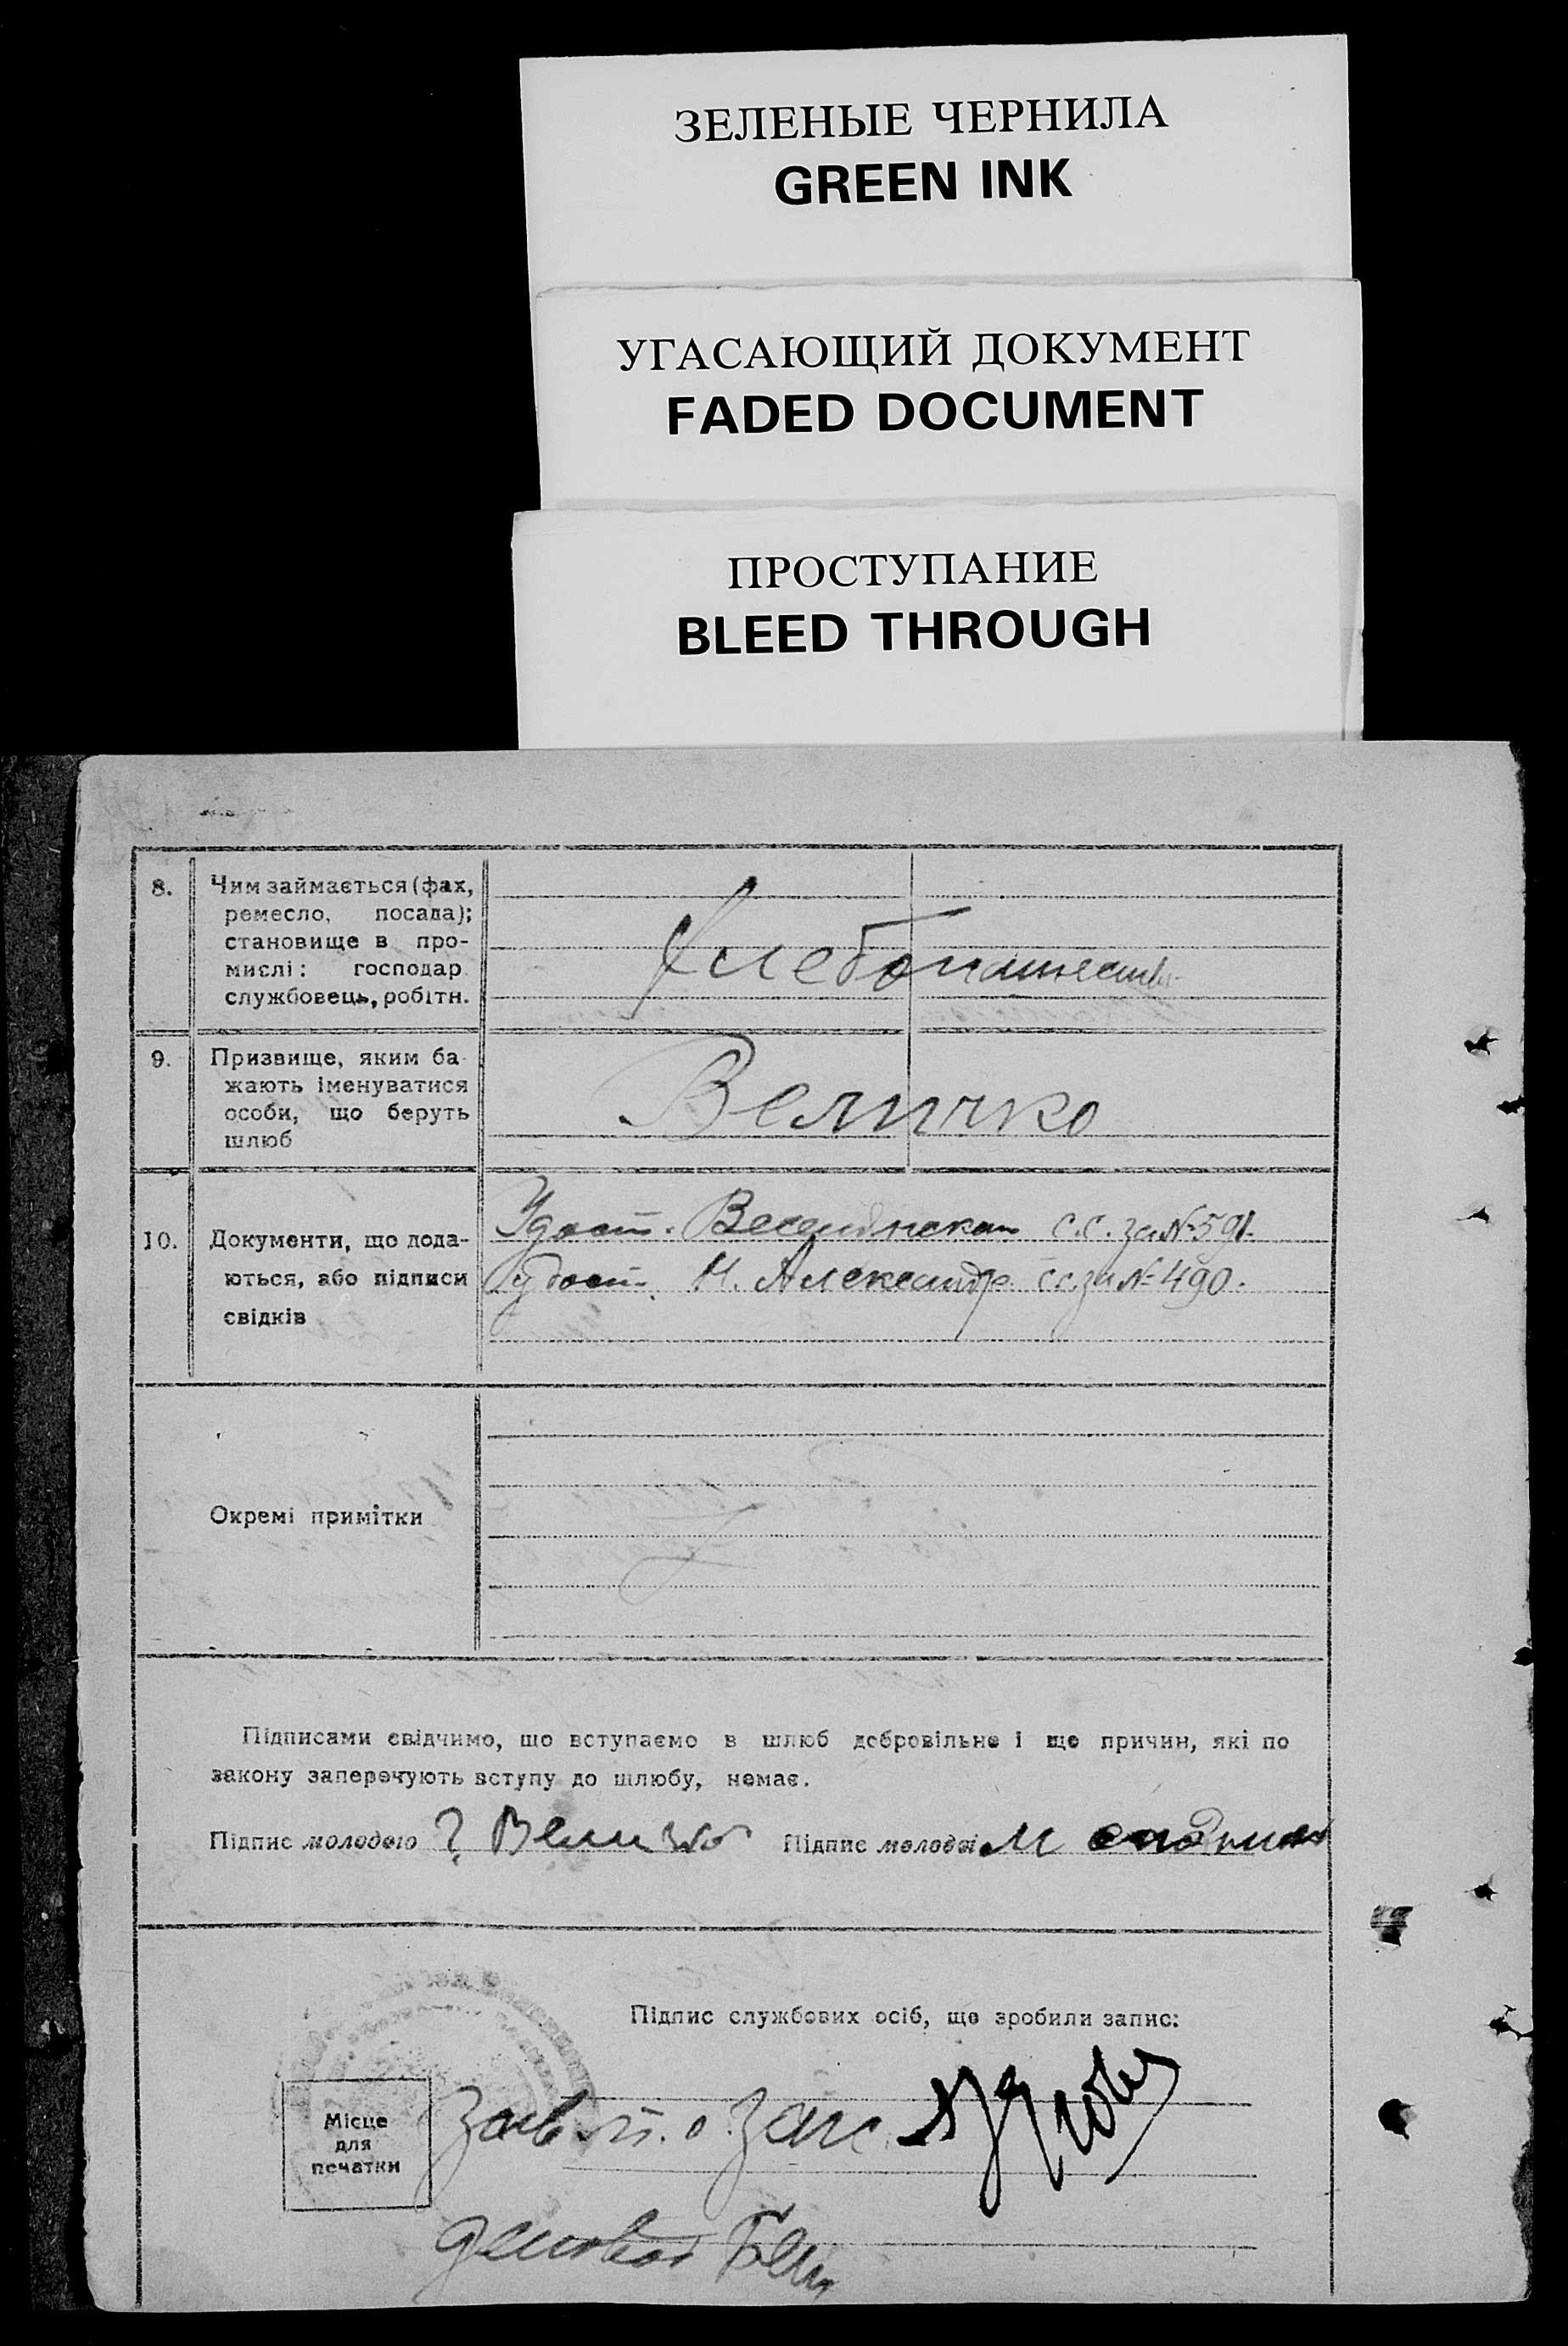 ЗЕЛЕНЫЕ ЧЕРНИЛА
GREEN INK
УГАСАЮЩИЙ ДОКУМЕНТ
FADED DOCUMENT
ПРОСТУПАНИЕ
BLEED THROUGH
8.
Чим займається (фах,
ремесло, посада);
становище в про-
мислі: господар
службовець, робітн.
9.
Призвище, яким ба-
жають іменуватися
особи, що беруть
шлюб
Величко
10.
Документи, що дода-
ються, або підписи
свідків
Удост. с.с. за № 591.
Удост. Н. Александр. с.с. за № 490.
Окремі примітки
Підписами свідчимо, що вступаємо в шлюб добровільно і що причин, які по
закону заперечують вступу до шлюбу, немає.
Підпис молодого Величко Підпис молодої М
Підпис службових осіб, що зробили запис:
Місце
для
печатки
Зав. загс